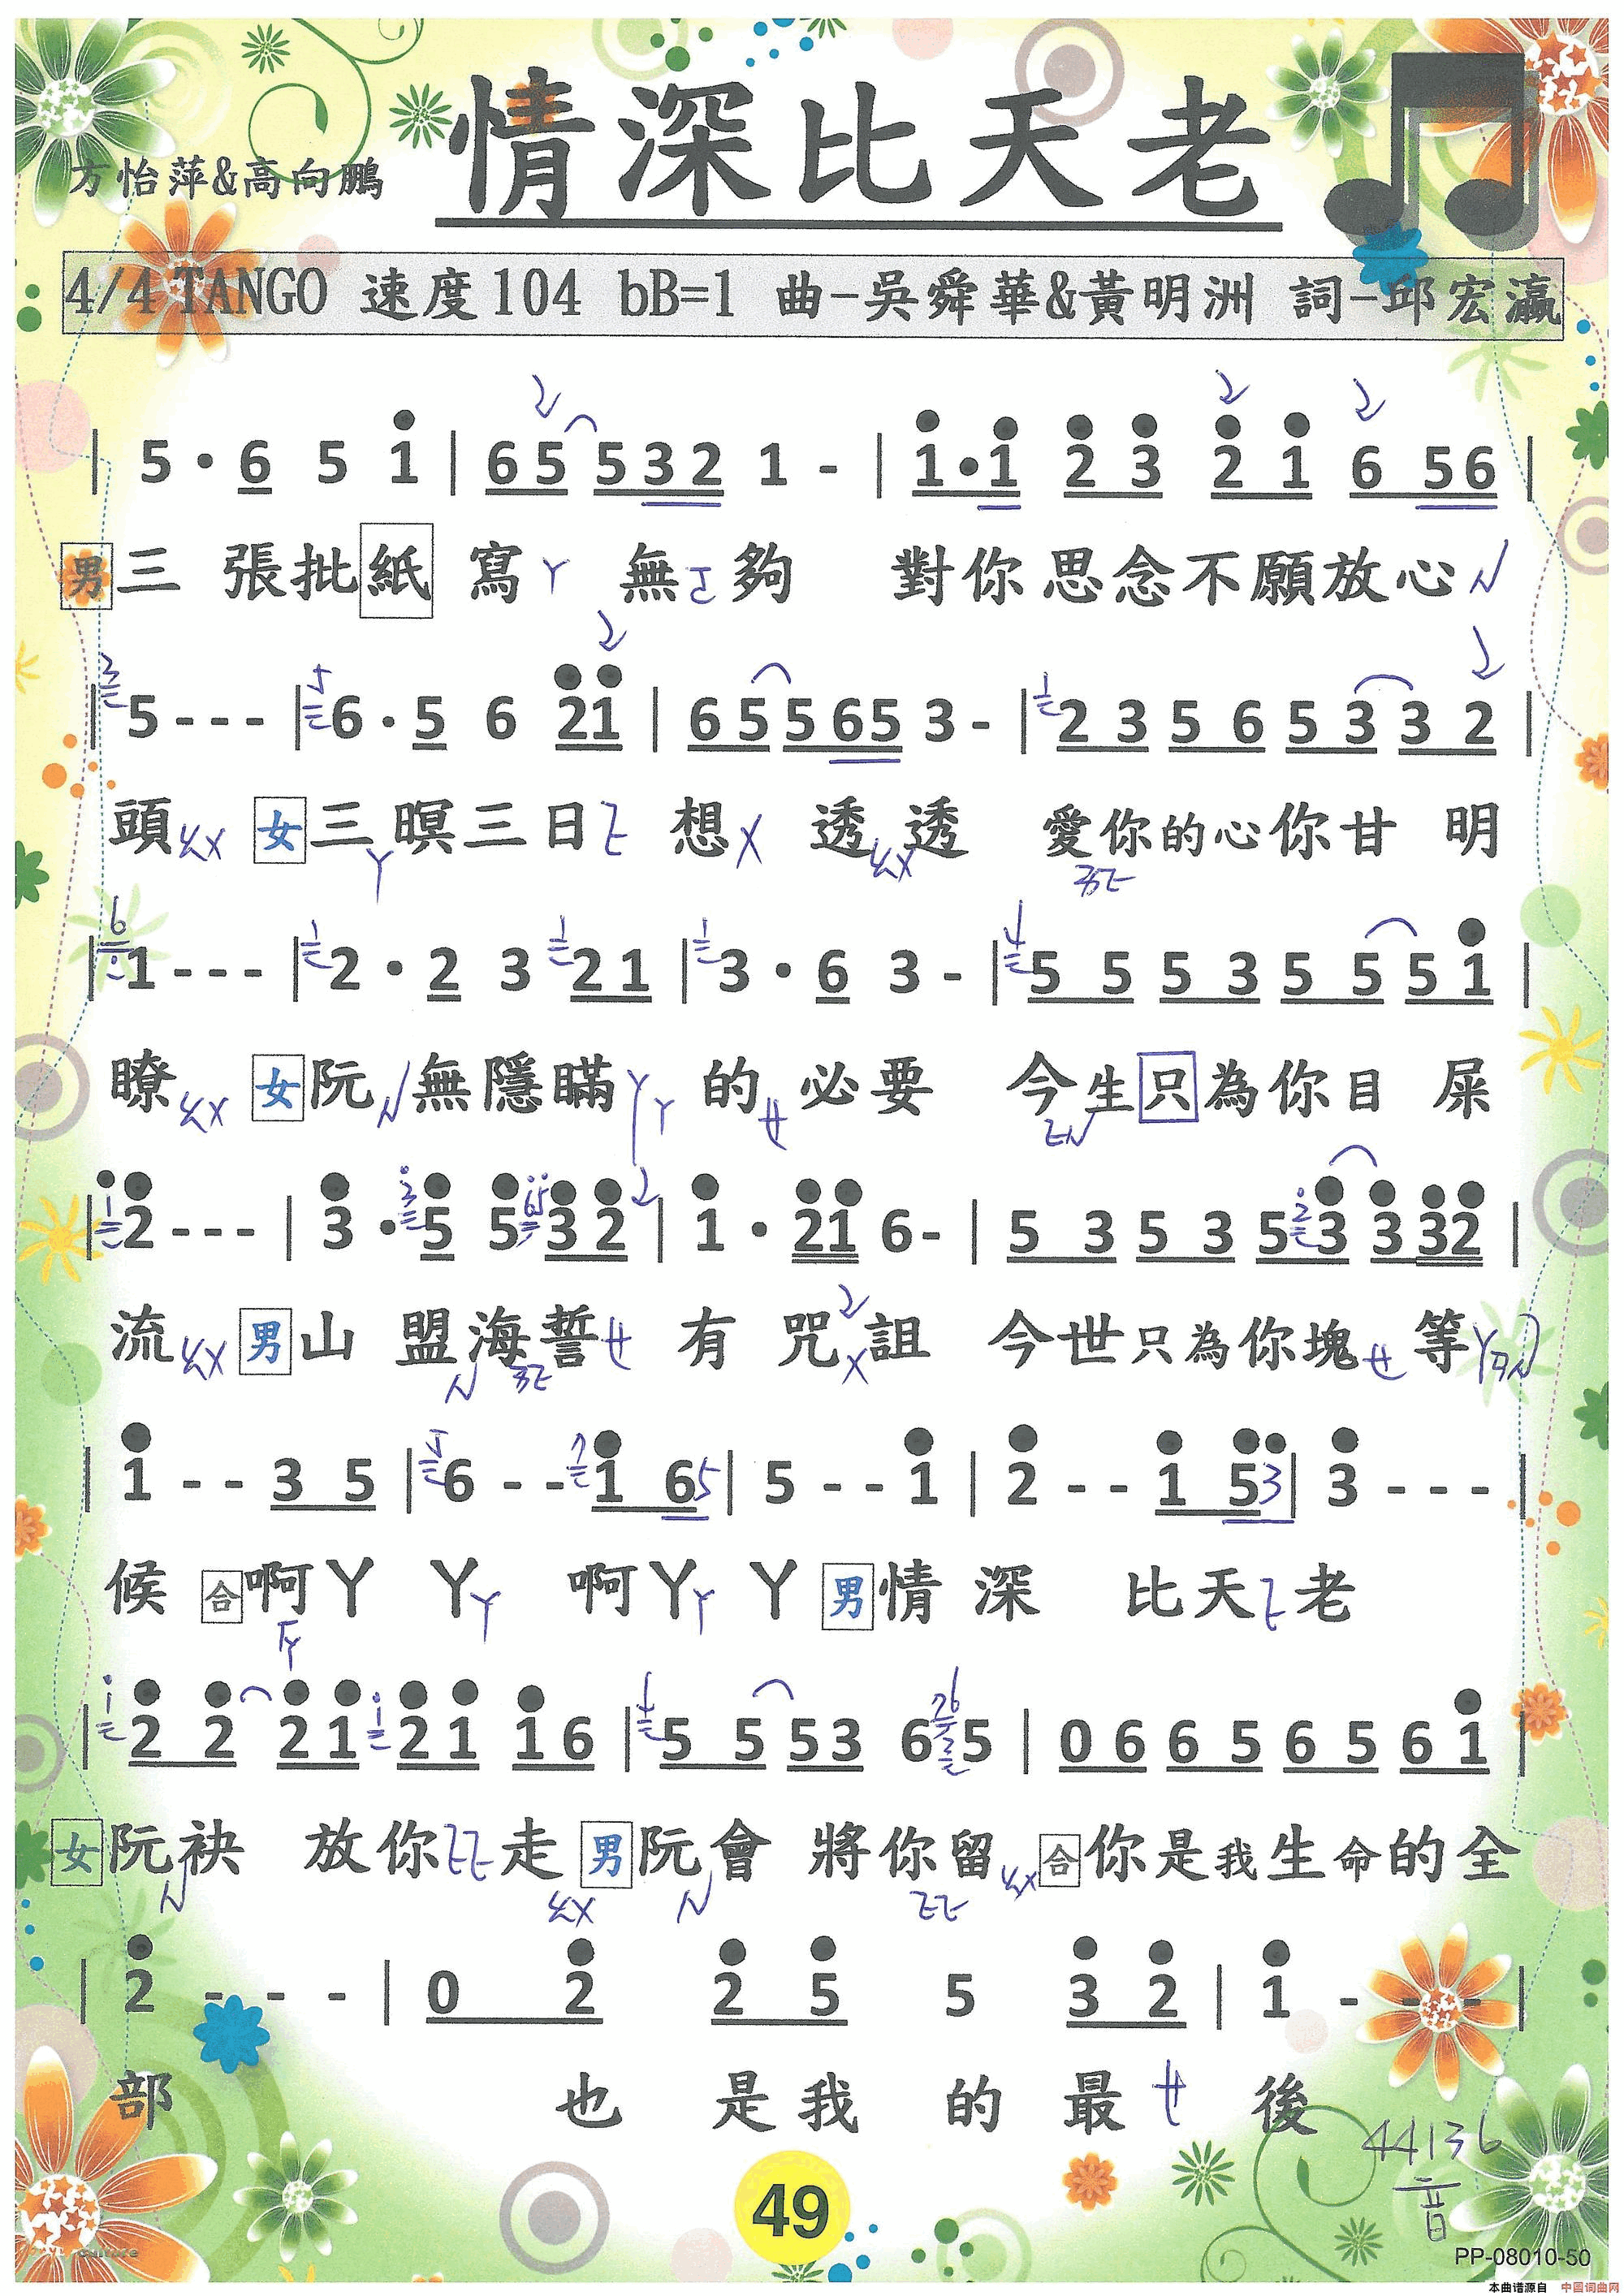 情深比天老
方怡萍&高向鵬
4/4 TANGO 速度104 bB=1 曲-吳舜華&黃明洲 詞-邱宏瀛
| 5 · 6 5 1 | 6 5 5 3 2 1 - | 1 · 1 2 3 2 1 6 5 6 |
男 三 張批紙 寫ㄚ 無 夠 對你思念不願放心ㄣ
| 5 - - - | 6 · 5 6 2 1 | 6 5 5 6 5 3 - | 2 3 5 6 5 3 3 2 |
頭ㄠㄨ 女 三 暝三日ㄜ 想ㄨ 透ㄠㄨ透 愛你的心你甘 明
| 1 - - - | 2 · 2 3 2 1 | 3 · 6 3 - | 5 5 5 3 5 5 5 1 |
瞭ㄠㄨ 女 阮ㄣ無隱瞞ㄚㄚ 的ㄝ必要 今生只為你目 屎
| 2 - - - | 3 · 5 5 3 2 | 1 · 2 1 6 - | 5 3 5 3 5 3 3 3 2 |
流ㄠㄨ 男 山 盟海誓ㄝ 有 咒ㄨ詛 今世只為你塊ㄝ等
| 1 - - 3 5 | 6 - - 1 6 5 | 5 - - 1 | 2 - - 1 5 3 | 3 - - - |
候 合 啊ㄚ ㄚㄚ 啊ㄚㄚ ㄚ 男 情 深 比天ㄜ老
| 2 2 2 1 2 1 1 6 | 5 5 5 3 6 5 | 0 6 6 5 6 5 6 1 |
女 阮袂 放你ㄜㄜ走 男 阮會 將你留ㄠㄨ 合 你是我生命的全
| 2 - - - | 0 2 2 5 5 3 2 | 1 - - - |
部 也 是我 的 最ㄝ 後
44136
音
49
PP-08010-50
本曲谱源自 中国词曲网